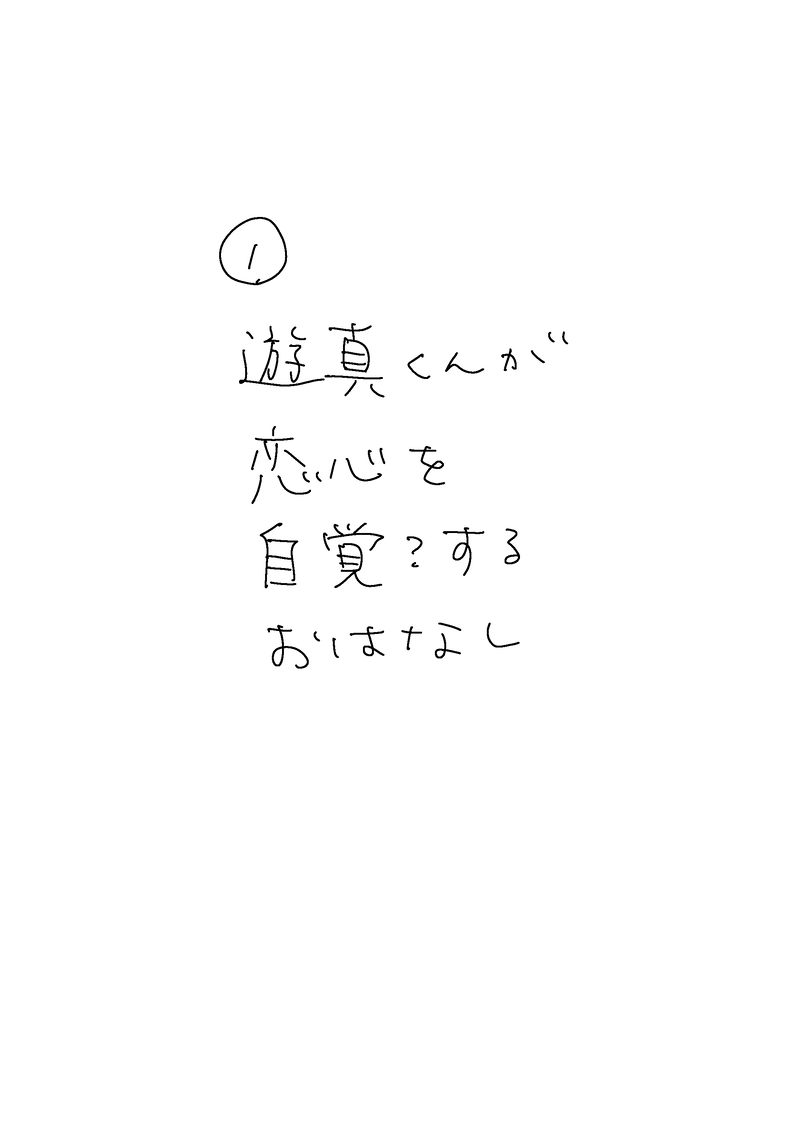 ①
遊真くんが
恋心を
自覚?する
おはなし